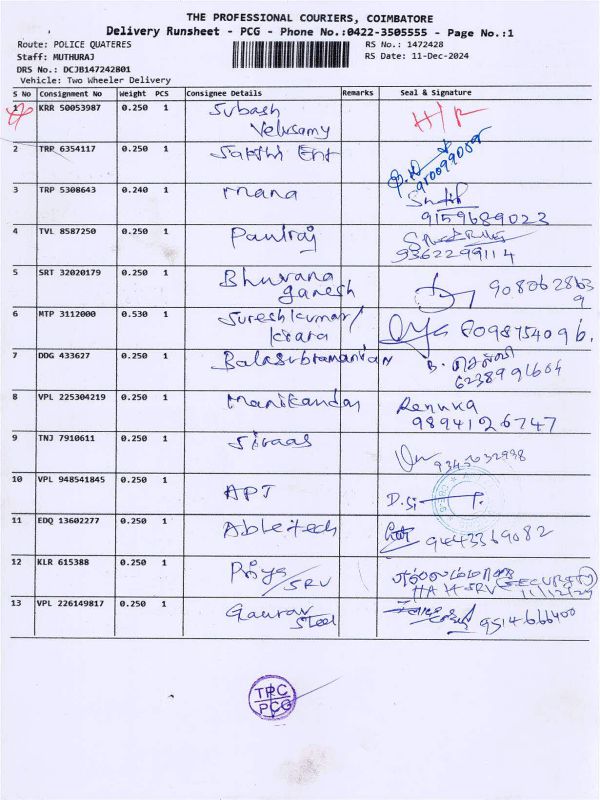 THE PROFESSIONAL COURIERS, COIMBATORE
Delivery Runsheet - PCG - Phone No.:0422-3505555 - Page No.:1
Route: POLICE QUATERES RS No.: 1472428
Staff: MUTHURAJ RS Date: 11-Dec-2024
DRS No.: DCJB147242801
Vehicle: Two Wheeler Delivery
S No Consignment No Weight PCS Consignee Details Remarks Seal & Signature
1 KRR 50053987 0.250 1 Subash
Velusamy
2 TRP 6354117 0.250 1 Sakthi Ent
3 TRP 5308643 0.240 1 mana
9159689023
4 TVL 8587250 0.250 1 Paulraj
9362299114
5 SRT 32020179 0.250 1 Bhuvana
ganesh
9080628639
6 MTP 3112000 0.530 1 Sureshkumar/
8098754096.
7 DDG 433627 0.250 1 Balasubramanian
6238991604
8 VPL 225304219 0.250 1 Manikandan Renuka
9894126747
9 TNJ 7910611 0.250 1
10 VPL 948541845 0.250 1 APT
11 EDQ 13602277 0.250 1 Abletech 9443369082
12 KLR 615388 0.250 1 Priya
/SRV SECURITY
11/12/24
13 VPL 226149817 0.250 1 Gaurav
Steel 9514666400
TPC
PCG